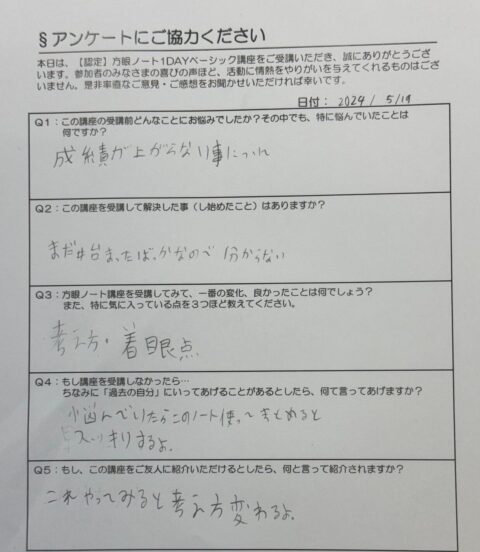 §アンケートにご協力ください
本日は、【認定】方眼ノート1DAYベーシック講座をご受講いただき、誠にありがとうござ
います。参加者のみなさまの喜びの声ほど、活動に情熱をやりがいを与えてくれるものはござ
いません。是非率直なご意見・ご感想をお聞かせいただければ幸いです。
日付：2024 / 5/19
Q1：この講座の受講前どんなことにお悩みでしたか？その中でも、特に悩んでいたことは
何ですか？
成績が上がらない事について
Q2：この講座を受講して解決した事（し始めたこと）はありますか？
まだ始まったばっかなので分からない
Q3：方眼ノート講座を受講してみて、一番の変化、良かったことは何でしょう？
また、特に気に入っている点を３つほど教えてください。
考え方・着眼点
Q4：もし講座を受講しなかったら…
ちなみに「過去の自分」にいってあげることがあるとしたら、何て言ってあげますか？
悩んでいたらこのノート使ってまとめると
スッキリするよ。
Q5：もし、この講座をご友人に紹介いただけるとしたら、何と言って紹介されますか？
これやってみると考え方変わるよ。